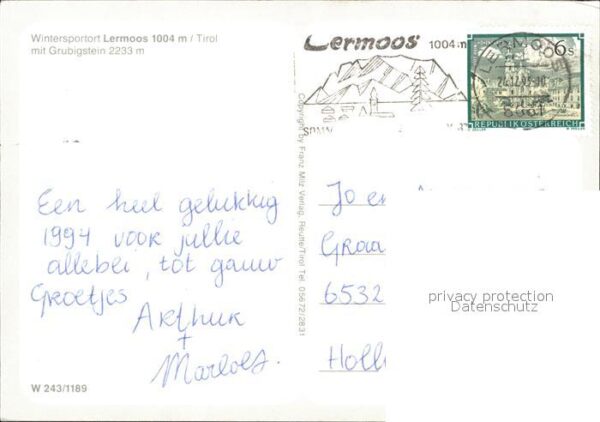 Wintersportort Lermoos 1004 m / Tirol
mit Grubigstein 2233 m
Lermoos 1004 m
LERMOOS
6s
6631
REPUBLIK ÖSTERREICH
Copyright by Franz Milz Verlag, Reutte/Tirol Tel. 05672/2831
Een heel gelukkig
1994 voor jullie
allebei, tot gauw
Groetjes
Arthur
+
Marloes.
Jo en
Graa
6532
Holl
privacy protection
Datenschutz
W 243/1189